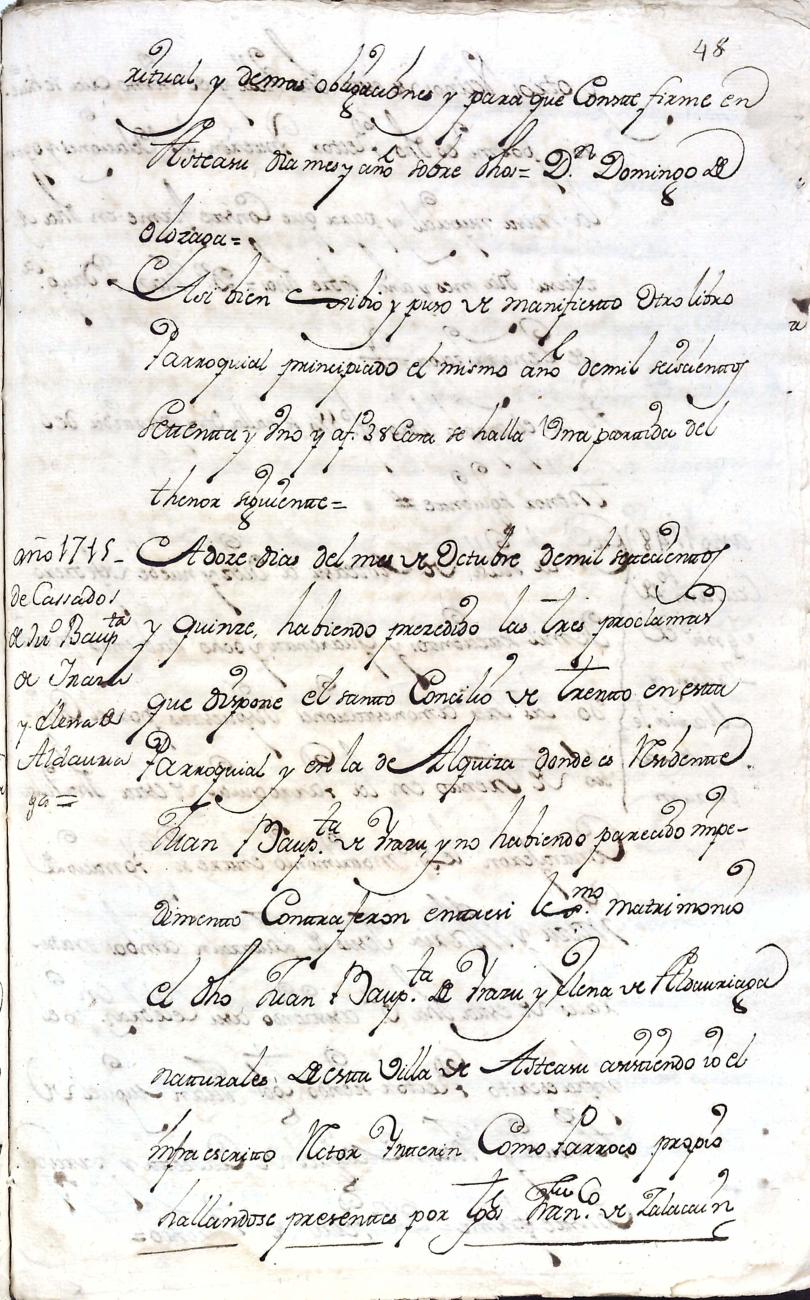 48
ritual, y demas obligaciones y para que Conste firme en
Asteasu dia mes y año sobre dhos= D.ⁿ Domingo de
olozaga=
Asi bien exibio y puso de manifiestto Otro libro
Parroquial principiado el mismo año de mil seiscienttos
settentta y Vno y a f.º 38 Cara se halla Vna partida del
thenor siguientte=
año 1715_
de Cassados
de Ju.º Baup.ta
de Yraru
y Elena de
Aldauria
ga=
A doze dias del mes de Octubre de mil settecienttos
y quinze, habiendo prezedido las tres proclamas
que dispone el santto Concilio de trentto en estta
Parroquial y en la de Alquiza donde es Residentte
Juan Baup.ta de Yraru, y no habiendo parecido impe-
dimentto Contrajeron enttre si lex.mo matrimonio
el dho Juan Baup.ta de Yraru y Elena de Aldauriaga
natturales de estta Villa de Asteasu asistiendo io el
infraescritto Rector Ynterin Como Parroco propio
hallandose presenttes por tgos Fran.co de Zalacain